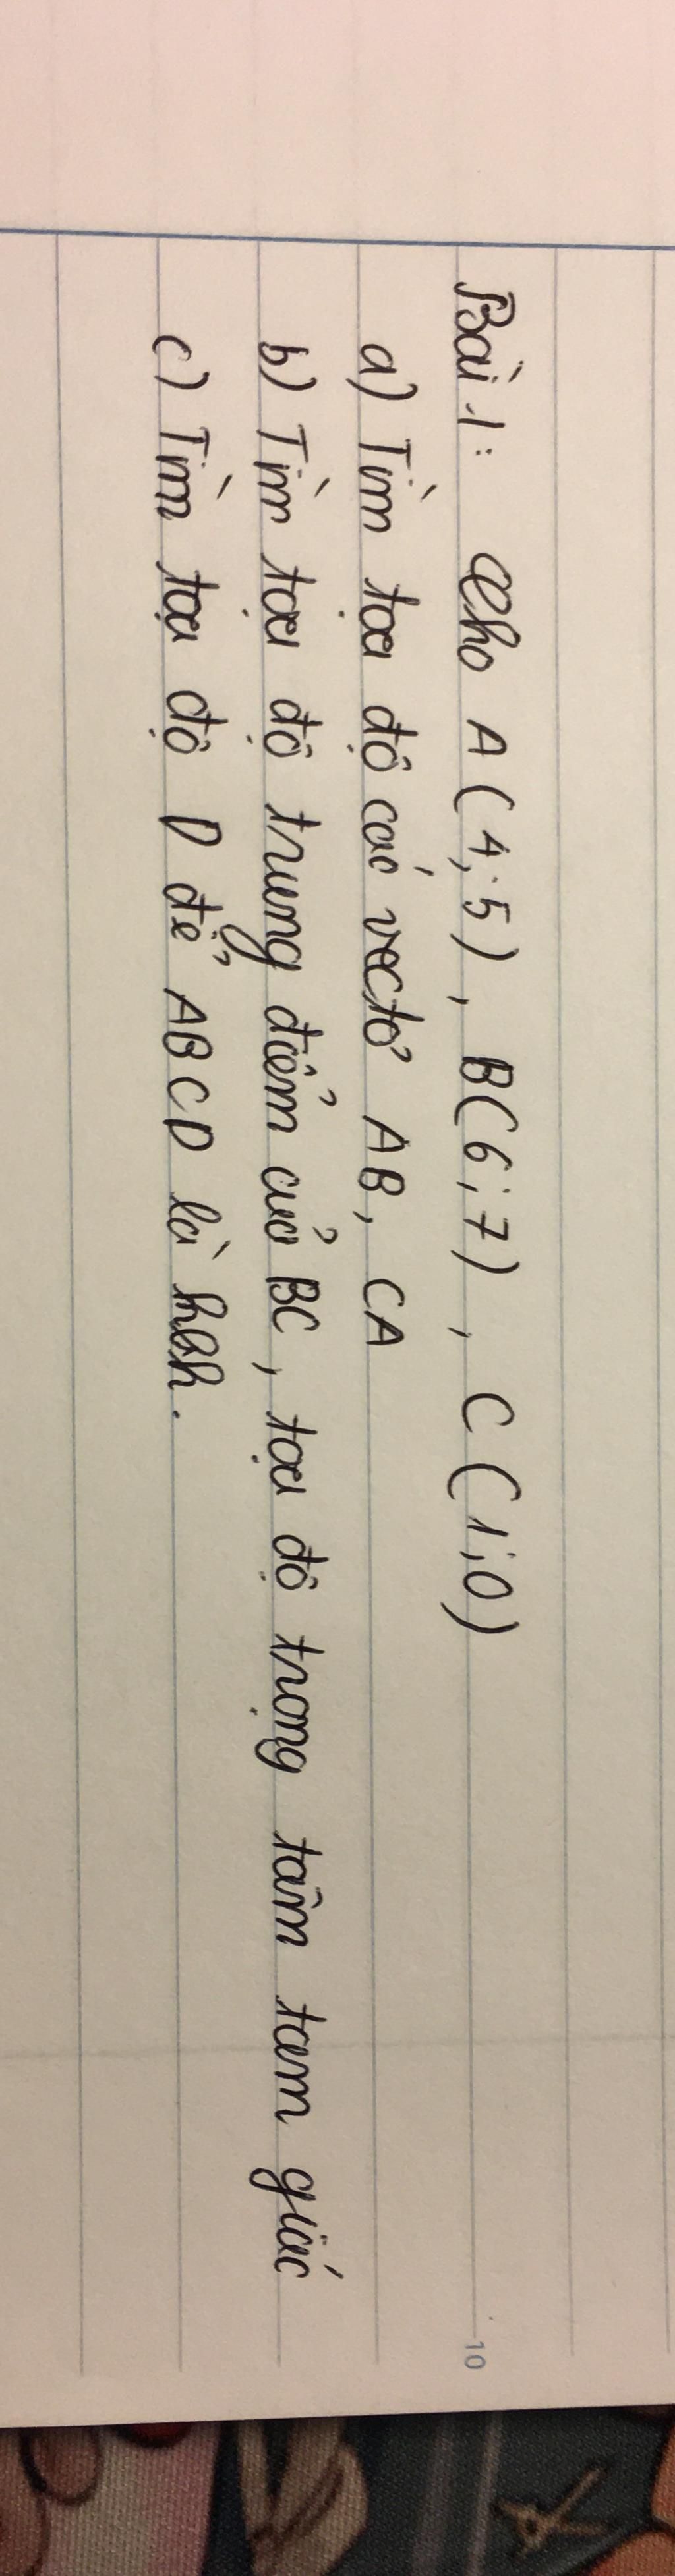 Bài 1: Cho A(4;5), B(6;7), C(1;0)
a) Tìm tọa độ các vectơ AB, CA
b) Tìm tọa độ trung điểm của BC, tọa độ trọng tâm tam giác
c) Tìm tọa độ D để ABCD là hbh.
10